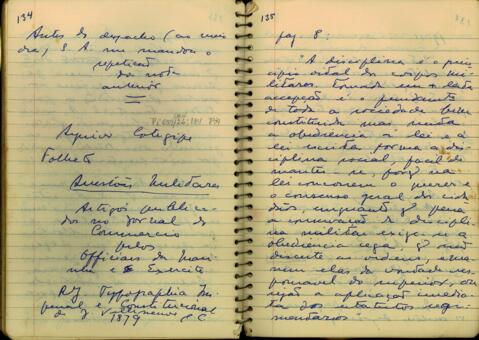 134
Antes do despacho (ao meio
dia) S. A. me mandou a
repetição
da nota
anterior
Arquivo Cotegipe
Folheto
Questões Militares
Artigos publica-
dos no Jornal do
Commercio
pelos
Officiaes da Mari-
nha e Exercito
RJ Typographia Im-
perial e Constitucional
de J Villeneuve & C
1879
135
pag 8:
"A disciplina é o prin-
cipio vital dos corpos mi-
litares. Tomada em + lata
accepção é o pendente
de toda a sociedade bem
constituida mas nesta
a obediencia á lei e á
lei muita forma a dis-
ciplina social, facil de
manter-se, porq na
lei concorrem o querer e
o consenso geral dos cida-
dãos, emquanto q para
a manutenção da discipli-
na militar exige-se a
obediencia cega, q não
discute as ordens, ema-
nem ellas da vontade res-
ponsavel do superior, ou
sejão a applicação imedia-
ta dos estatutos regi-
mentarios"